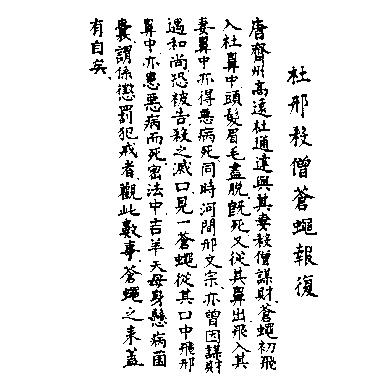 杜邢殺僧蒼蠅報復
唐齊州高遠杜通達與其妻殺僧謀財蒼蠅初飛
入杜鼻中頭髮眉毛盡脫既死又從其鼻出飛入其
妻鼻中亦得惡病死同時河間邢文宗亦曾因謀財
遇和尚恐被告殺之滅口見一蒼蠅從其口中飛邢
鼻中亦患惡病而死密法中吉羊天母身懸病菌
囊謂係懲罰犯戒者觀此數事蒼蠅之来蓋
有自矣